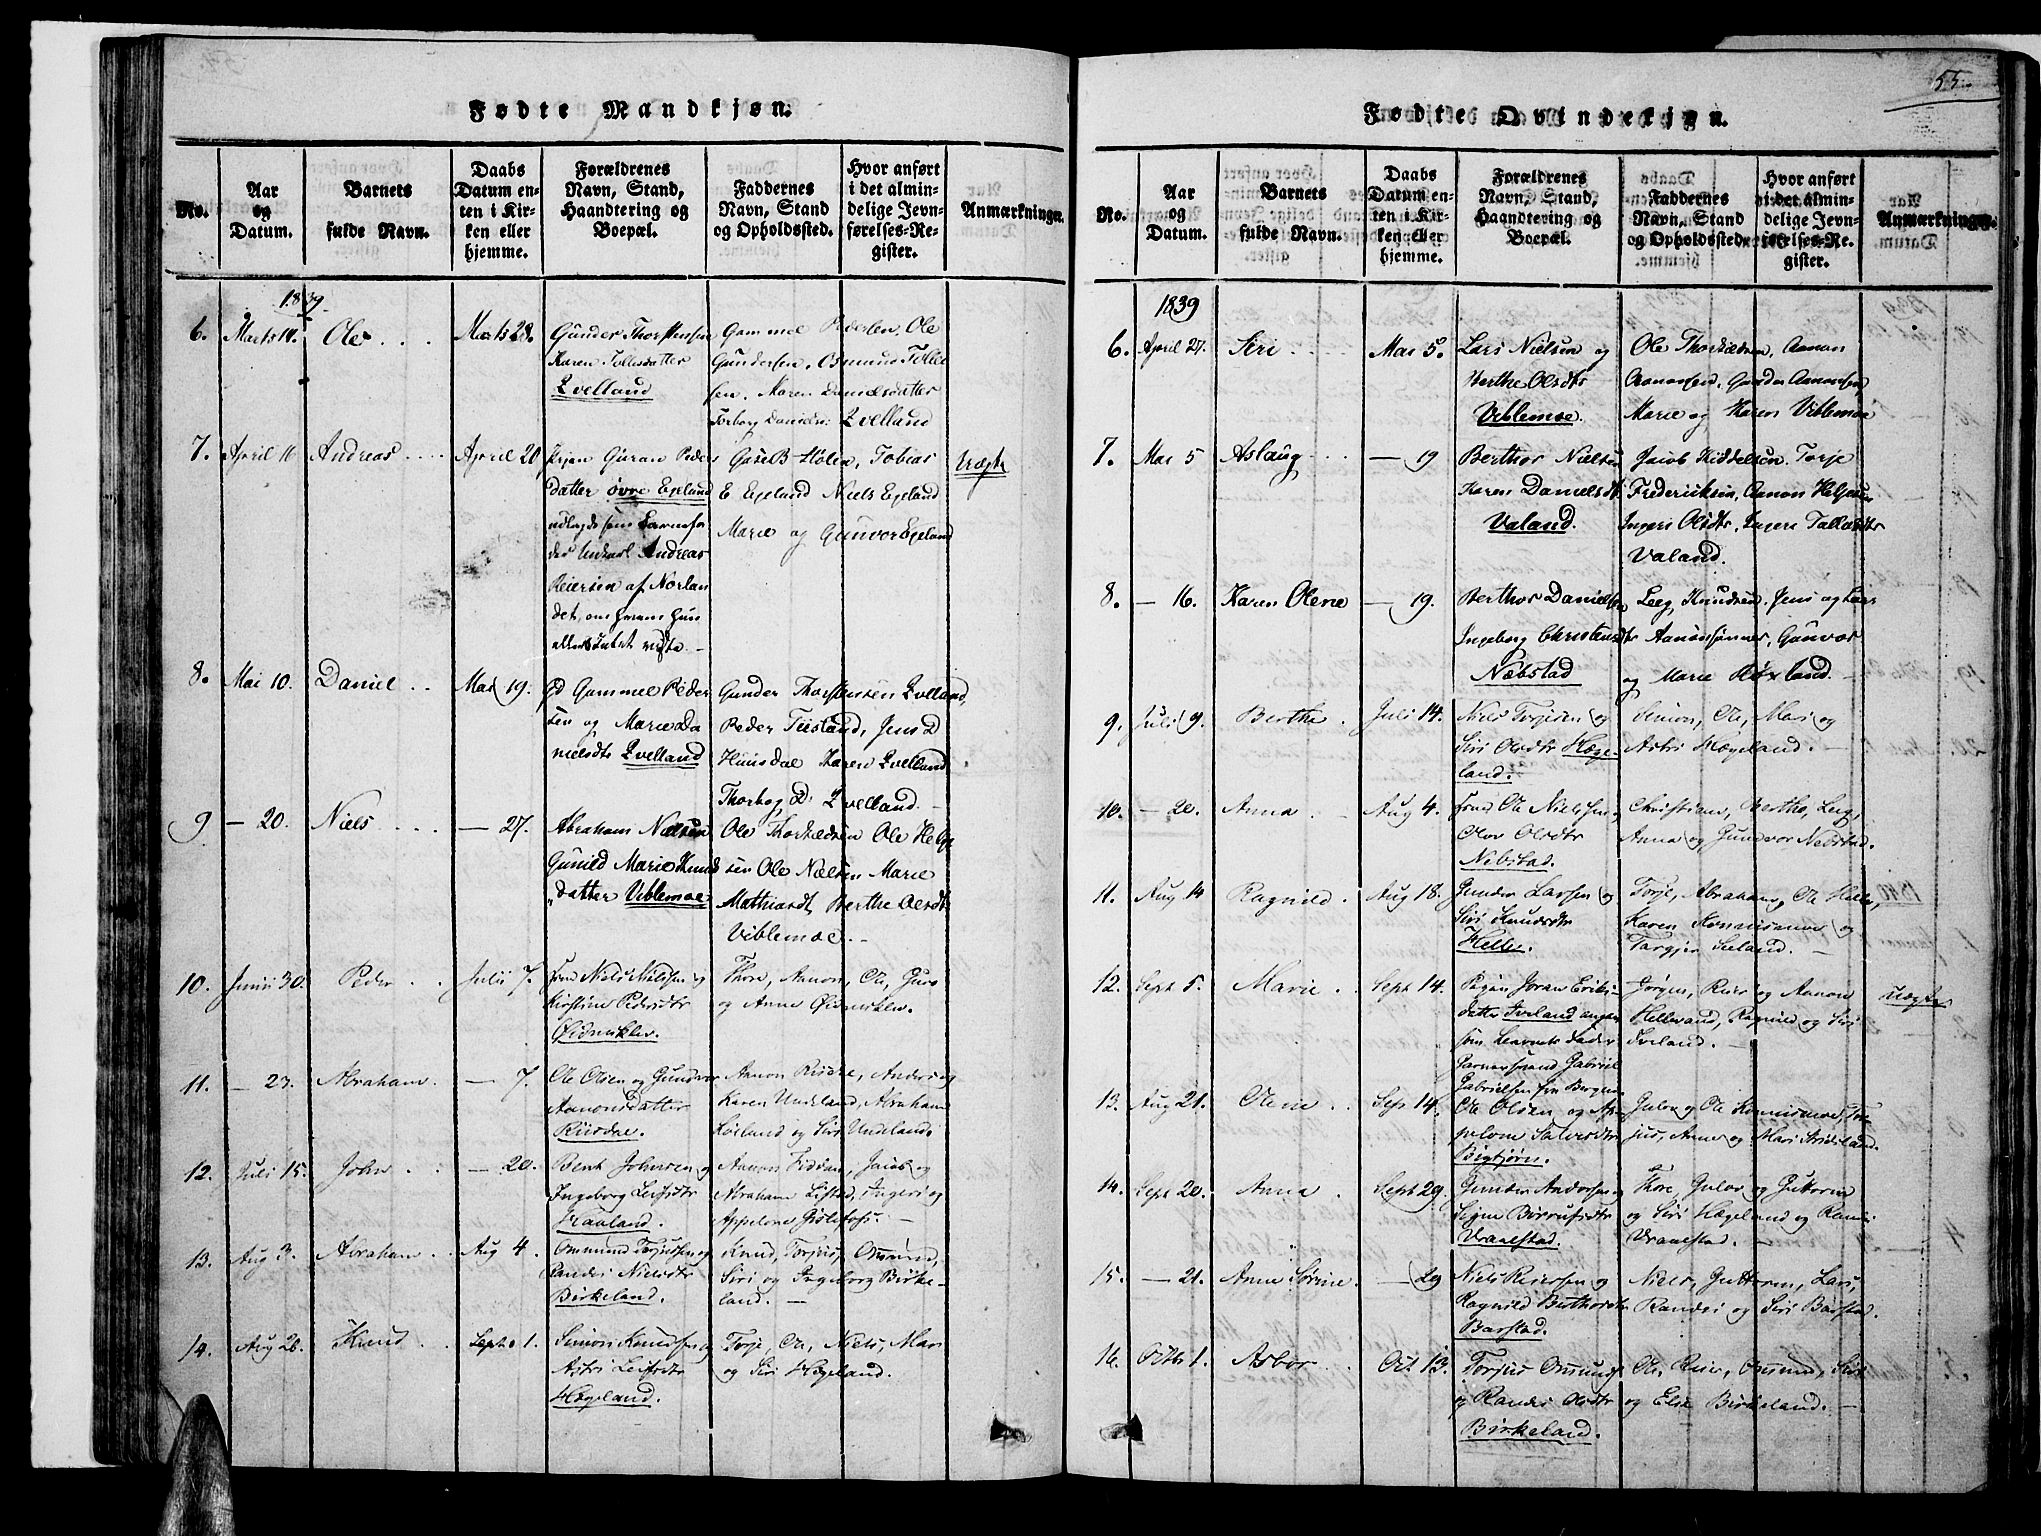 55.
Fødte Mandkjøn.
No.
Aar og Datum.
Barnets fulde Navn.
Daabs Datum enten i Kirken eller hjemme.
Forældrenes Navn, Stand, Haandtering og Boepæl.
Faddernes Navn, Stand og Opholdssted.
Hvor anført i det almindelige Jevnførelses-Register.
Anmærkninger.
1839.
6. Marts 14. Ole Marts 28.
Gunder Thorstensen
Karen Tollesdatter
Qvelland
Gammel Pedersen, Ole
Gundersen, Osmund Tolle
sen, Maren Danielsdatter
Torborg Danielsd: Qvelland
7. April 11 Andreas April 20
Guran Peders
datter øvre Egeland
Andreas
Reiersen af Norlan
det, om
Gase B. Hølen, Tobias
E Egeland Niels Egeland
Marie og Gunvor Egeland
Uægte
8. Mai 10. Daniel Mai 19.
Gammel Peder
sen og Marie Da
nielsdtr Qvelland
Gunder Thorstensen Qvelland,
Peder Teistand, Jens D
Hunsdal Karen Qvelland
Thorbog D: Qvelland.
9 — 20. Niels — 27.
Abraham Nielsen
Gunild Marie Knud
datter Viblemoe
Ole Thorkædsen Ole Helge
sen Ole Nielsen Marie
Mathiasdt, Berthe Olsdtr
Viblemoe.
10. Junii 30. Peder Julii 7.
Niels Nielsen og
Kirstine Pedersdtr
Øidneklev.
Thore, Aanon, Ole, Guro
og Anne Øidneklev.
11. — 23. Abraham — 7.
Ole Olsen og Gundvor
Aanonsdatter
Riisdal.
Aanon Riisdal, Anders og
Karen Undeland, Abraham
Løland og Siri Undeland.
12. Juli 15. John — 20.
Bent Johnsen og
Ingeborg Leifsdtr
Haaland.
Aanon Fiddan, Jacob og
Abraham Lifstad, Ingeri og
Appelone
13. Aug 3. Abraham Aug 4.
Ommund Torjusen og
Randei Nielsdtr
Birkeland.
Knud, Torjus, Ommund,
Siri og Ingeborg Birke-
land. —
14. Aug 26. Knud Septe 1.
Simon Knudsen og
Astri Leifsdtr
Hægeland.
Torje, Ole, Niels, Mari
og Siri Hægeland.
Fødte Qvindekjøn.
No.
Aar og Datum.
Barnets fulde Navn.
Daabs Datum enten i Kirken eller hjemme.
Forældrenes Navn, Stand, Haandtering og Boepæl.
Faddernes Navn, Stand og Opholdssted.
Hvor anført i det almindelige Jevnførelses-Register.
Anmærkninger.
1839
6. April 27. Siri Mai 5.
Lars Nielsen og
Berthe Olsdtr
Viblemoe.
Ole Thorkædsen, Aanon
Aanonsen, Gunder Aanonsen,
Marie og Karen Viblemoe
7. Mai 5 Aslaug — 19
Berthor Nielsen
Karen Danielsdt
Valand.
Jacob Kiddelsen, Torje
Frederiksen, Aanon Helgesen
Ingeri Olsdtr, Ingeri Tallaksdtr
Valand.
8. — 16. Karen Olene — 19.
Berthor Danielsen
Ingeborg Christensdtr
Næbstad
Leeg, Knudsen, Jens og Lars
Aanonsønner, Gunvor
og Marie Høxland.
9. Juli 9. Berthe Juli 14.
Niels Torjesen og
Siri Olsdtr Hæge-
land.
Simon, Ole, Mari og
Astri Hægeland. —
10. — 20. Anna Aug 4.
Ole Nielsen og
Olov Olsdtr
Nebstad.
Christian, Berthe, Leg,
Anna og Gundvor Nebstad.
11. Aug 14 Ragnild Aug 18.
Gunder Larsen og
Siri Knudsdtr
Heller.
Torje, Abraham, Ole Heller,
Karen Kommisamoe og
Targjer Seeland.
12. Sept 5. Marie Sept 14.
Pigen Joran Eriks-
datter Iveland angav
som Barnets Fader
Gabriel
Gabrielsen fra Bergen
Jørgen, Reier og Aanon
Hellesand, Ragnild og Siri
Iveland. —
Uægte.
13. Aug 21. Olene Sept 14.
Ole Olsen og Ap-
pelone Salvesdtr
Bigtjørn.
Gulov og Ole Kommisamoe, Tor-
jus, Anne og Mari
14. Sept 20. Anna Sept 29.
Gunder Andersen og
Signe Birrufsdtr
Vraalstad.
Thore, Gulov og Guttorm
og Siri Hægeland og Randi
Vraalstad. —
15. — 21. Anne Serine — 29
Niels Reiersen og
Ragnild Berthorsdtr
Barstad.
Niels, Guttorm, Lars,
Randei og Siri Barstad.
16. Octbr 1. Asbor Oct. 13.
Torjus Ommunds
og Randei Olsdtr
Birkeland.
Ole, Reier, Ommund, Siri
og Else Birkeland. —